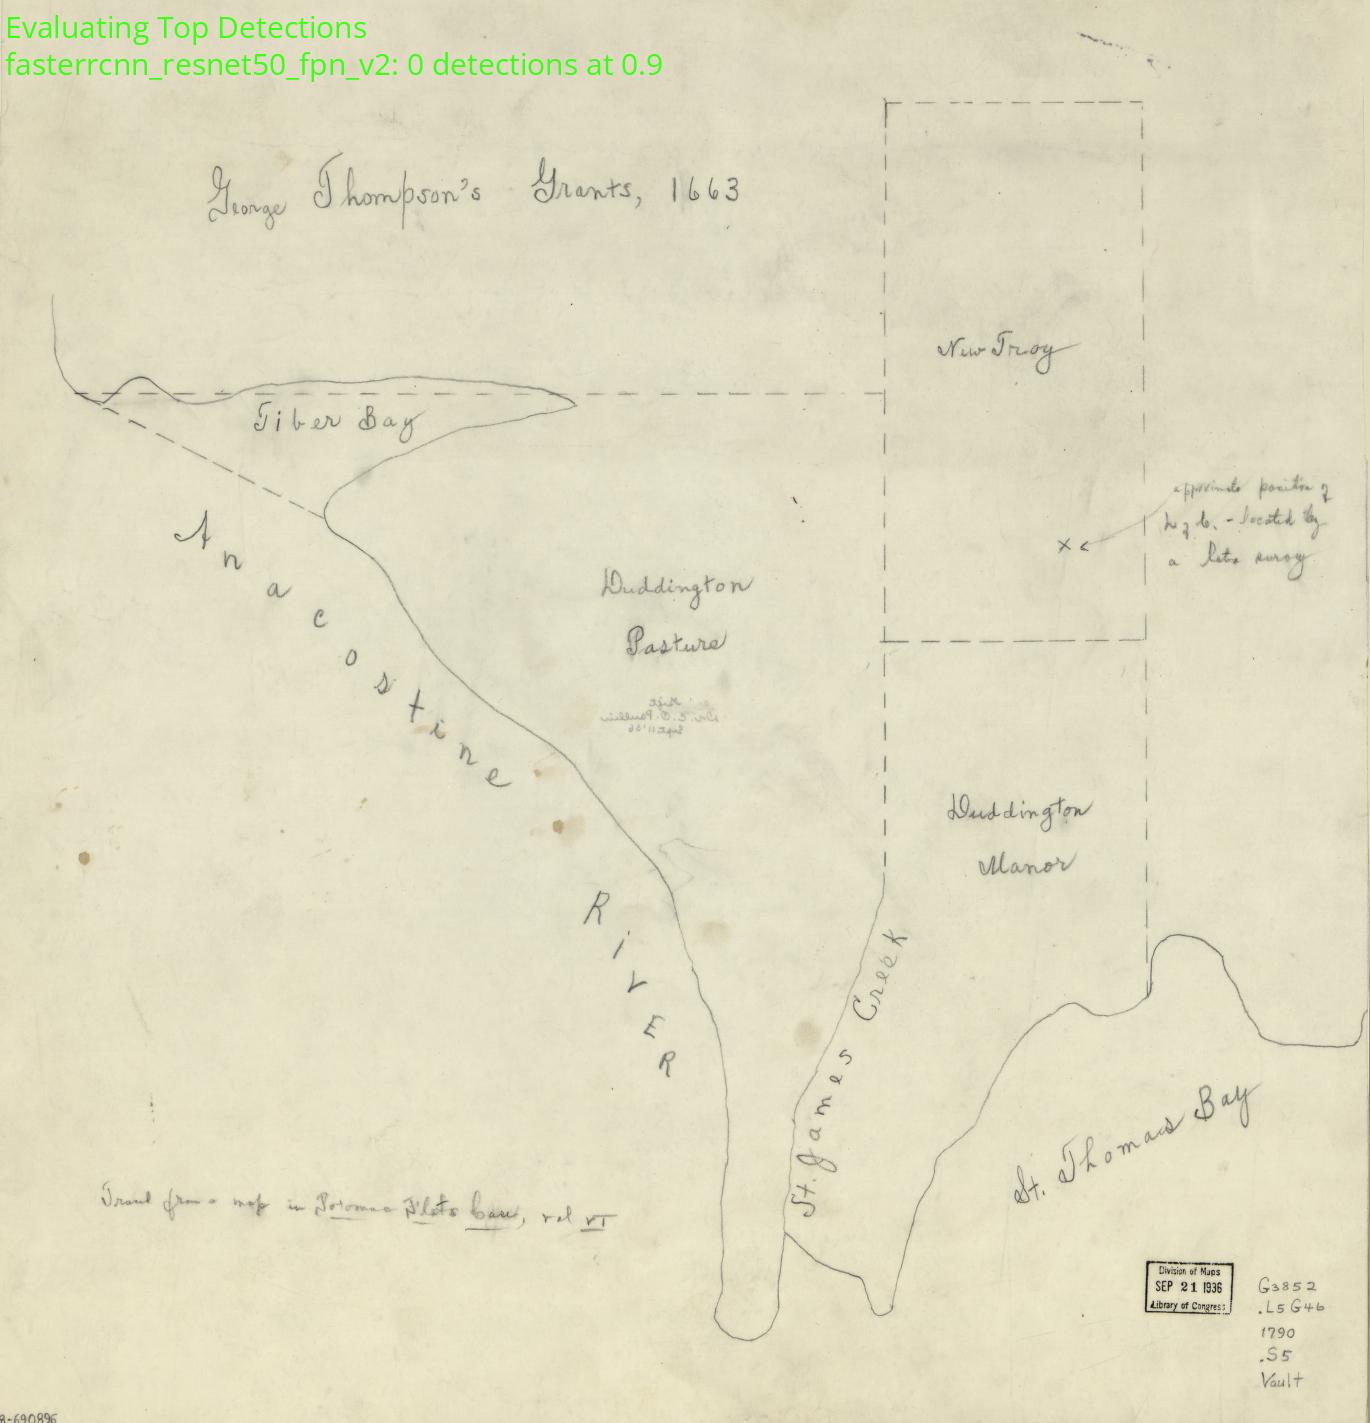 Evaluating Top Detections
fasterrcnn_resnet50_fpn_v2: 0 detections at 0.9
George Thompson's Grants, 1663
New Troy
Tiber Bay
approximate position of
L of C. - located by
a late survey
x
Anacostine
River
Duddington
Pasture
Gift
Dr. C. O. Paullin
Sept 11 '36
Duddington
Manor
St. James Creek
St. Thomas Bay
from a map in Potomac Flats Case, vol VI
Division of Maps
SEP 21 1936
Library of Congress
G3852
.L5G46
1790
.S5
Vault
8-690896